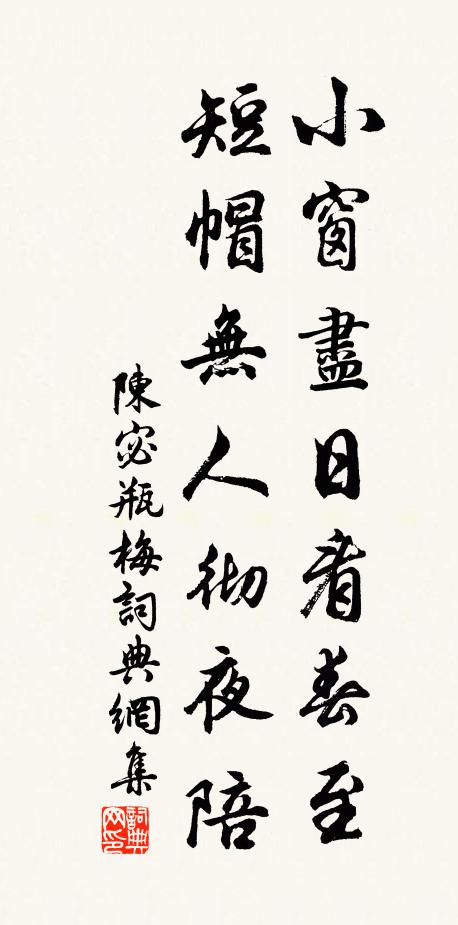 小窗盡日看春至
短帽無人彻夜陪
陳宓瓶梅詞典網集
詞典网印